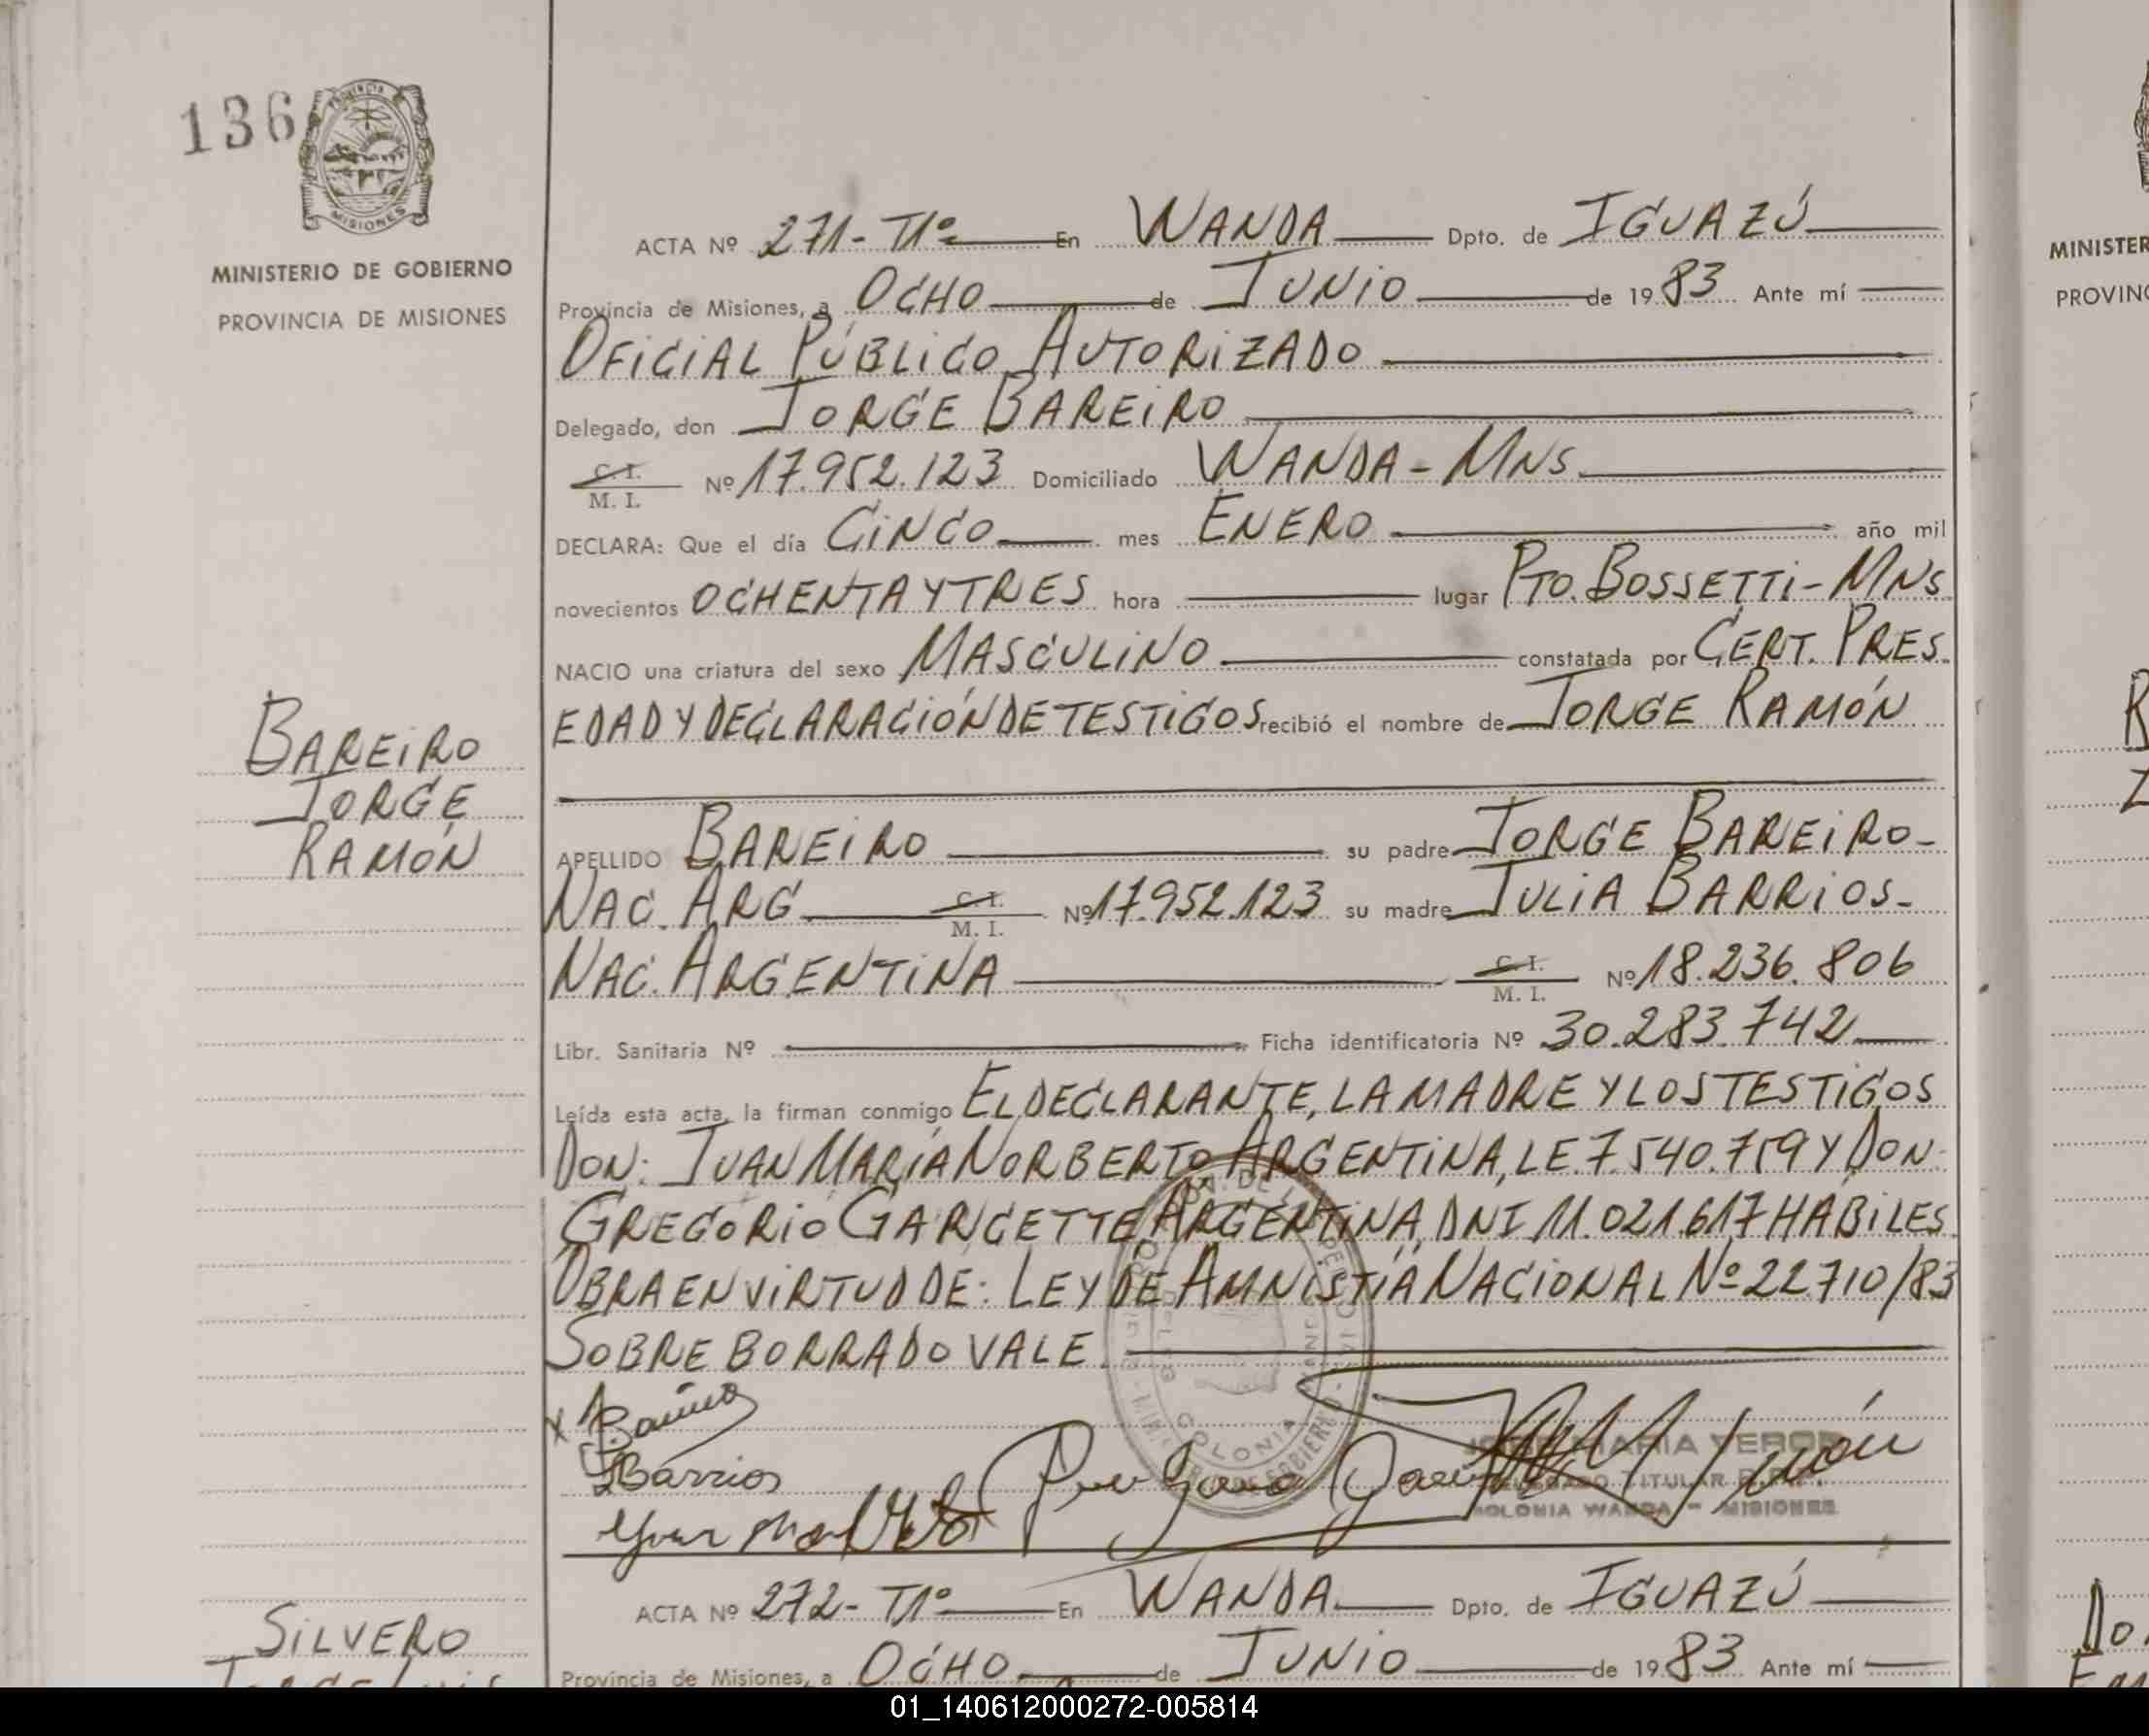 136
PROVINCIA
MISIONES
MINISTERIO DE GOBIERNO
PROVINCIA DE MISIONES
ACTA Nº 271-T1º En WANDA Dpto. de IGUAZÚ
Provincia de Misiones, a OCHO de JUNIO de 1983 Ante mí
OFICIAL PÚBLICO AUTORIZADO
Delegado, don JORGE BAREIRO
C. I.
M. I. Nº 17.952.123 Domiciliado WANDA-MNS
DECLARA: Que el día CINCO mes ENERO año mil
novecientos OCHENTA Y TRES hora lugar PTO. BOSSETTI-MNS
NACIO una criatura del sexo MASCULINO constatada por CERT. PRES.
EDAD Y DECLARACIÓN DE TESTIGOS recibió el nombre de JORGE RAMÓN
BAREIRO
JORGE
RAMÓN
APELLIDO BAREIRO su padre JORGE BAREIRO-
NAC. ARG C. I. M. I. Nº 17.952.123 su madre JULIA BARRIOS-
NAC. ARGENTINA C. I. M. I. Nº 18.236.806
Libr. Sanitaria Nº Ficha identificatoria Nº 30.283.742
Leída esta acta, la firman conmigo EL DECLARANTE, LA MADRE Y LOS TESTIGOS
DON: JUAN MARÍA NORBERTO ARGENTINA, LE 7.540.759 Y DON
GREGORIO GARCETTE ARGENTINA, DNI 11.021.617 HABILES
OBRA EN VIRTUD DE: LEY DE AMNISTÍA NACIONAL Nº 22.710/83
SOBRE BORRADO VALE.
Barrios
COLONIA
MARIA VERON
TITULAR
COLONIA WANDA - MISIONES
ACTA Nº 272-T1º En WANDA Dpto. de IGUAZÚ
SILVERO
Provincia de Misiones, a OCHO de JUNIO de 1983 Ante mí
MINISTER
PROVINC
01_140612000272-005814